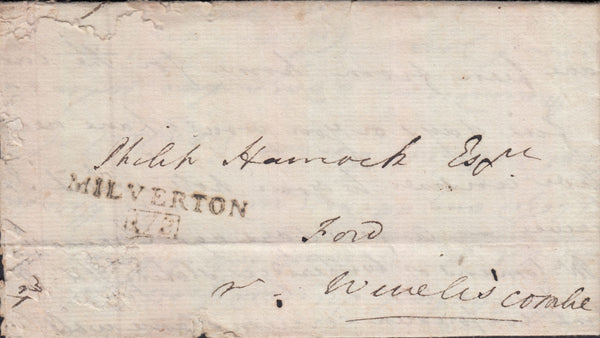 Philip Hancock Esqr
MILVERTON
173
Ford
nr. Wivelis combe